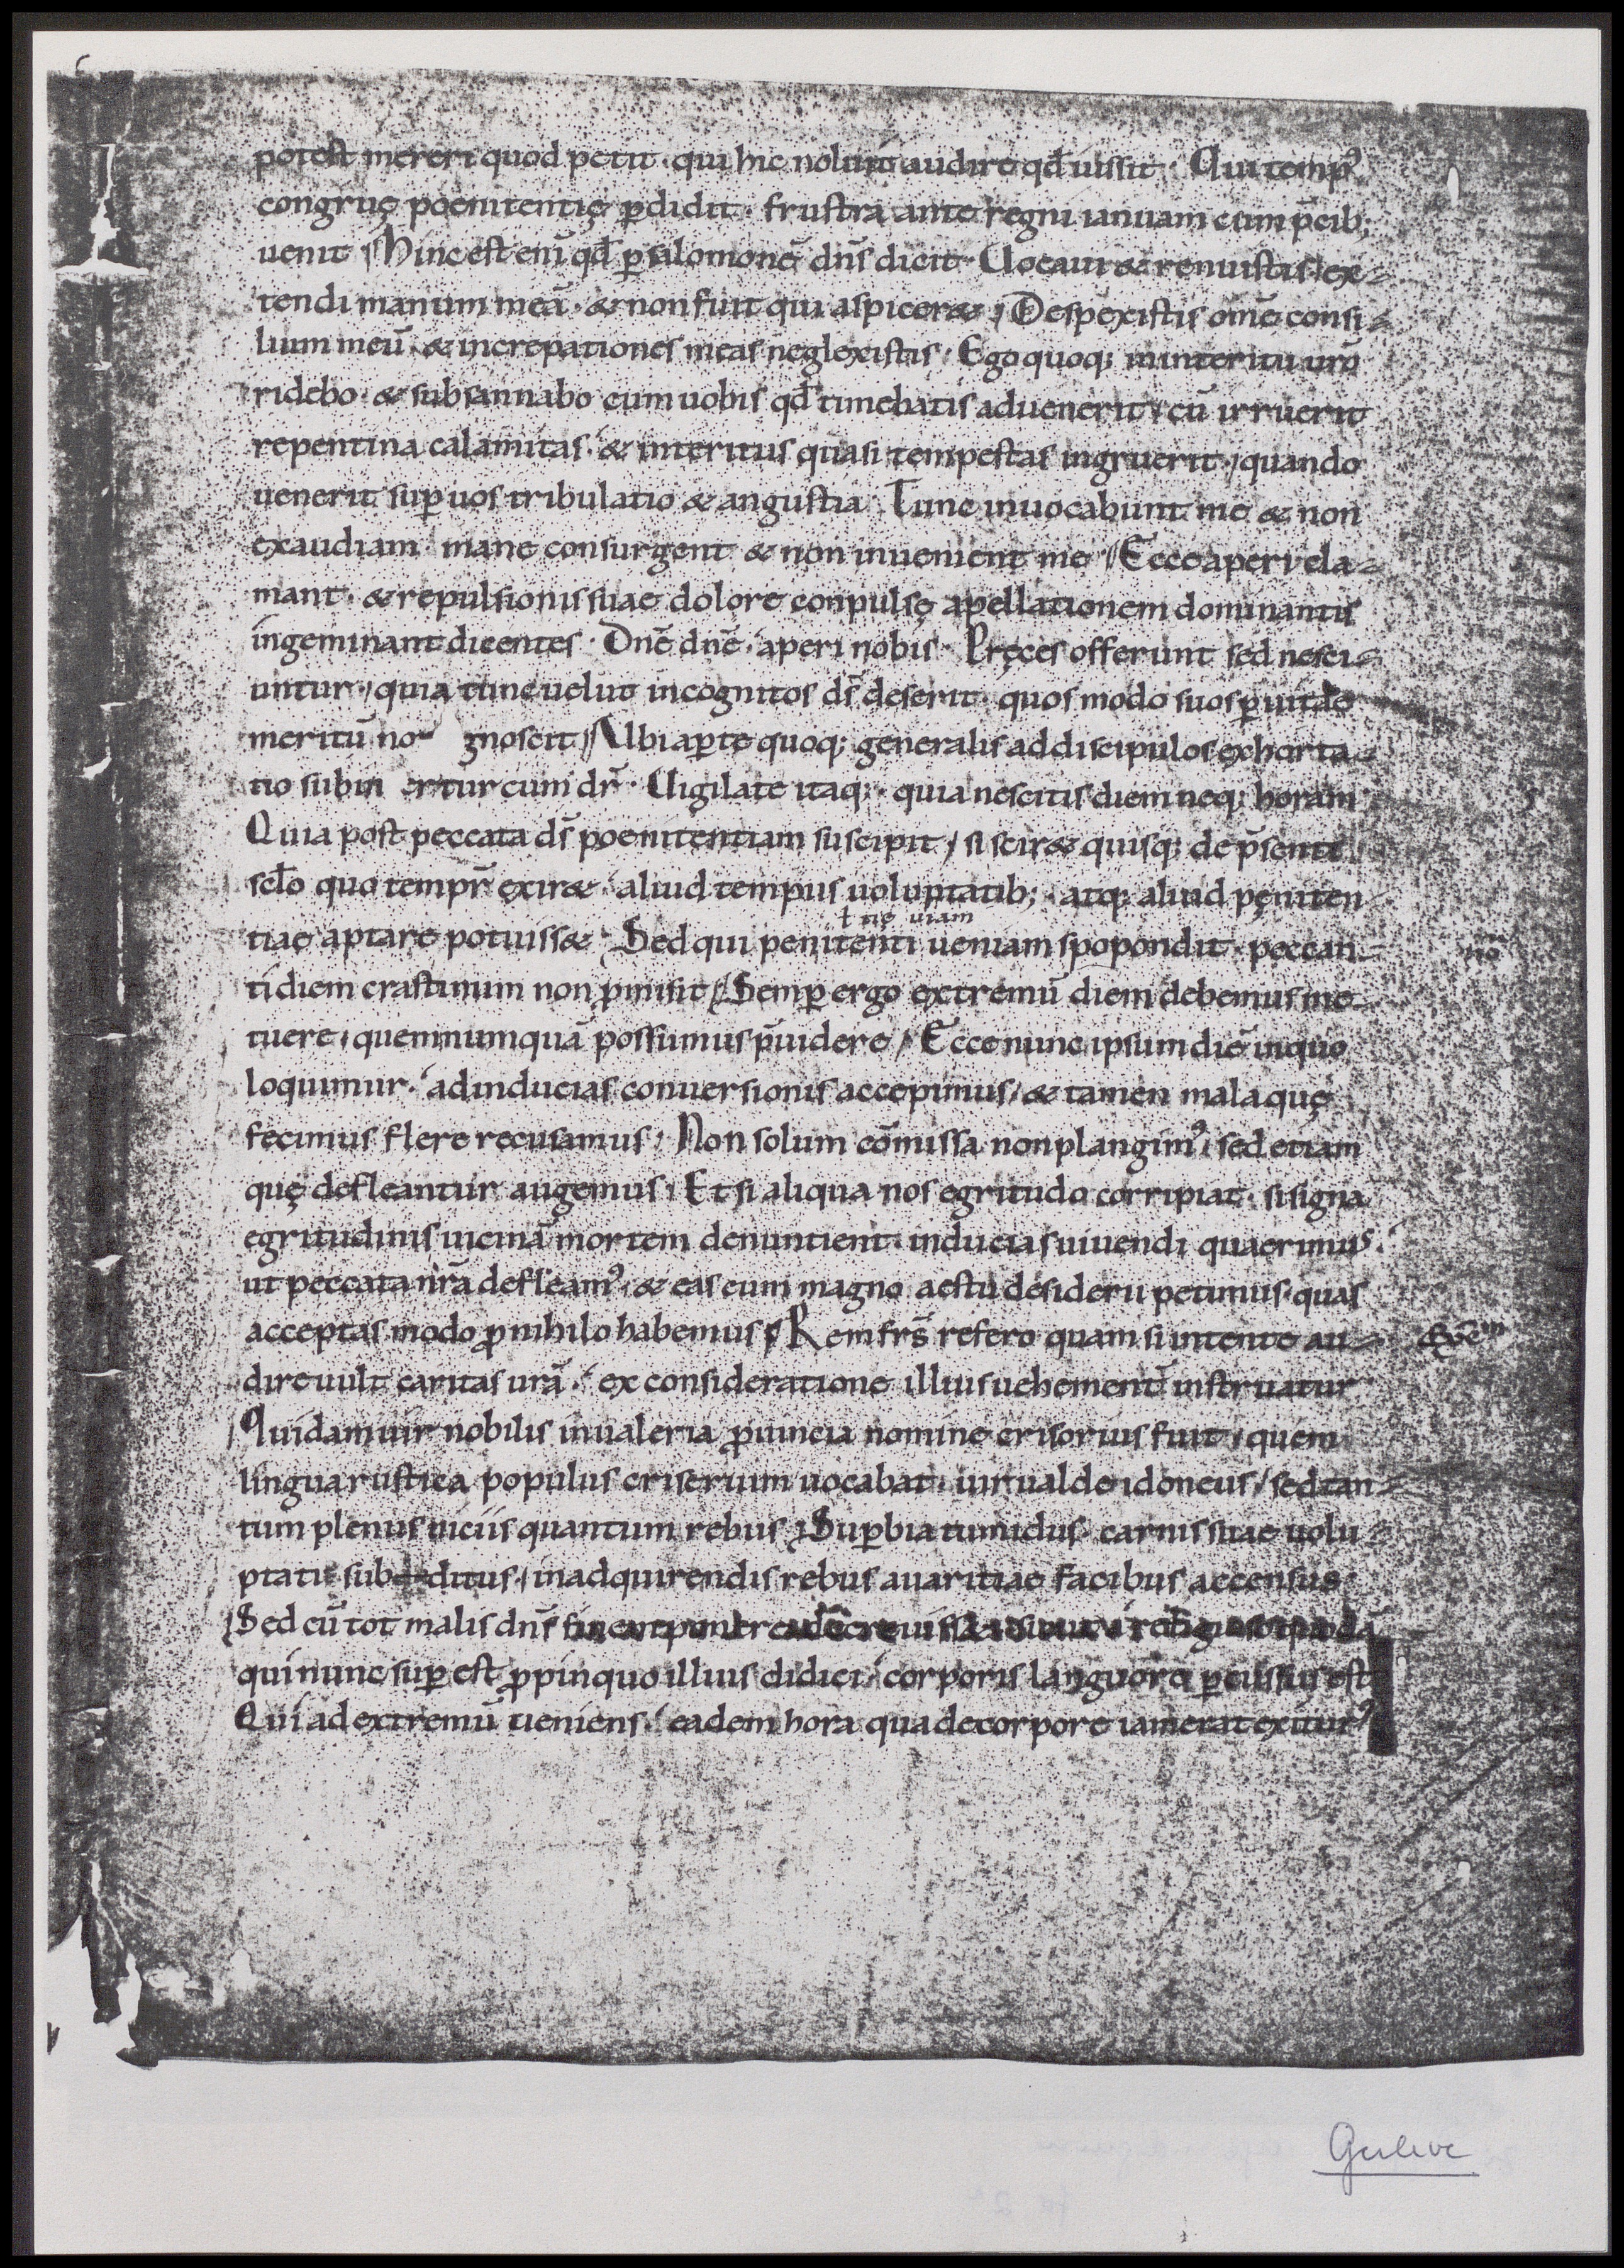 potest mereri quod petit · qui hic noluit audire qđ iussit · Qui temp᾽
congruę poenitentię p̱didit · frustra ante regni ianuam cum p̄cib;
uenit / Hinc est eni͞ qđ p̱ salomone͞ dn͞s dicit · Uocaui & renuistis · ex-
tendi manum mea͞ · & non fuit qui aspicer& / Despexistis om͞e consi-
lium meu͞ · & increpationes meas neglexistis / Ego quoq; in interitu ur͞o
ridebo · & subsannabo cum uobis qđ timebatis aduenerit / cu͞ irruerit
repentina calamitas · & interitus quasi tempestas ingruerit / quando
uenerit sup̱ uos tribulatio & angustia · Tunc inuocabunt me & non
exaudiam · mane consurgent & non inuenient me / Ecce aperi cla-
mant · & repulsionis suae dolore conpulsę apellationem dominantis
ingeminant dicentes · Dn͞e dn͞e · aperi nobis · Pręces offerunt sed nesci-
untur / quia tunc uelut incognitos ds͞ deserit · quos modo suos p̱ uitae
meritu͞ no gnoscit / Ubi ap̱te quoq; generalis ad discipulos exhorta-
tio subin ertur cum dr͞ · Uigilate itaq; · quia nescitis diem neq; horam
Quia post peccata ds͞ poenitentiam suscipit / si scir& quisq; de p̄senti
scl͞o quo tempr͞ exir& · aliud tempus uoluptatib; · atq; aliud pęniten
ɫ tię uiam
tiae aptare potuiss& · Sed qui penitenti ueniam spopondit · peccan- no͞
ti diem crastinum non p̱misit / Semp̱ ergo extremu͞ diem debemus me-
tuere / quem numqua͞ possumus p̄uidere / Ecce nunc ipsum die͞ in quo
loquimur · ad inducias conuersionis accepimus / & tamen mala quę
fecimus flere recusamus / Non solum co͞missa non plangim᾽ / sed etiam
quę defleantur augemus / Et si aliqua nos egritudo corripiat · si signa
egritudinis uicina͞ mortem denuntient · inducias uiuendi quaerimus ·
ut peccata nr͞a defleam᾽ / & eas cum magno aestu desiderii petimus · quas
acceptas modo p̱ nihilo habemus / Rem fr͞s refero quam si intente au-
dire uult caritas ur͞a · ex consideratione illius uehement͞ instruatur
Quidam uir nobilis in ualeria p̱uincia nomine crisorius fuit / quem
lingua rustica populus criserium uocabat · uir ualde idoneus / sed tan-
tum plenus uiciis quantum rebus / Sup̱bia tumidus · carnis suae uolu-
ptati subditus / in adquirendis rebus auaritiae facibus accensus
Sed cu͞ tot malis dn͞s
qui nunc sup̱ est p̱pinquo illius didici · corporis languore p̱cussus est
Qui ad extremu͞ ueniens · eadem hora qua de corpore iam erat exitur᾽